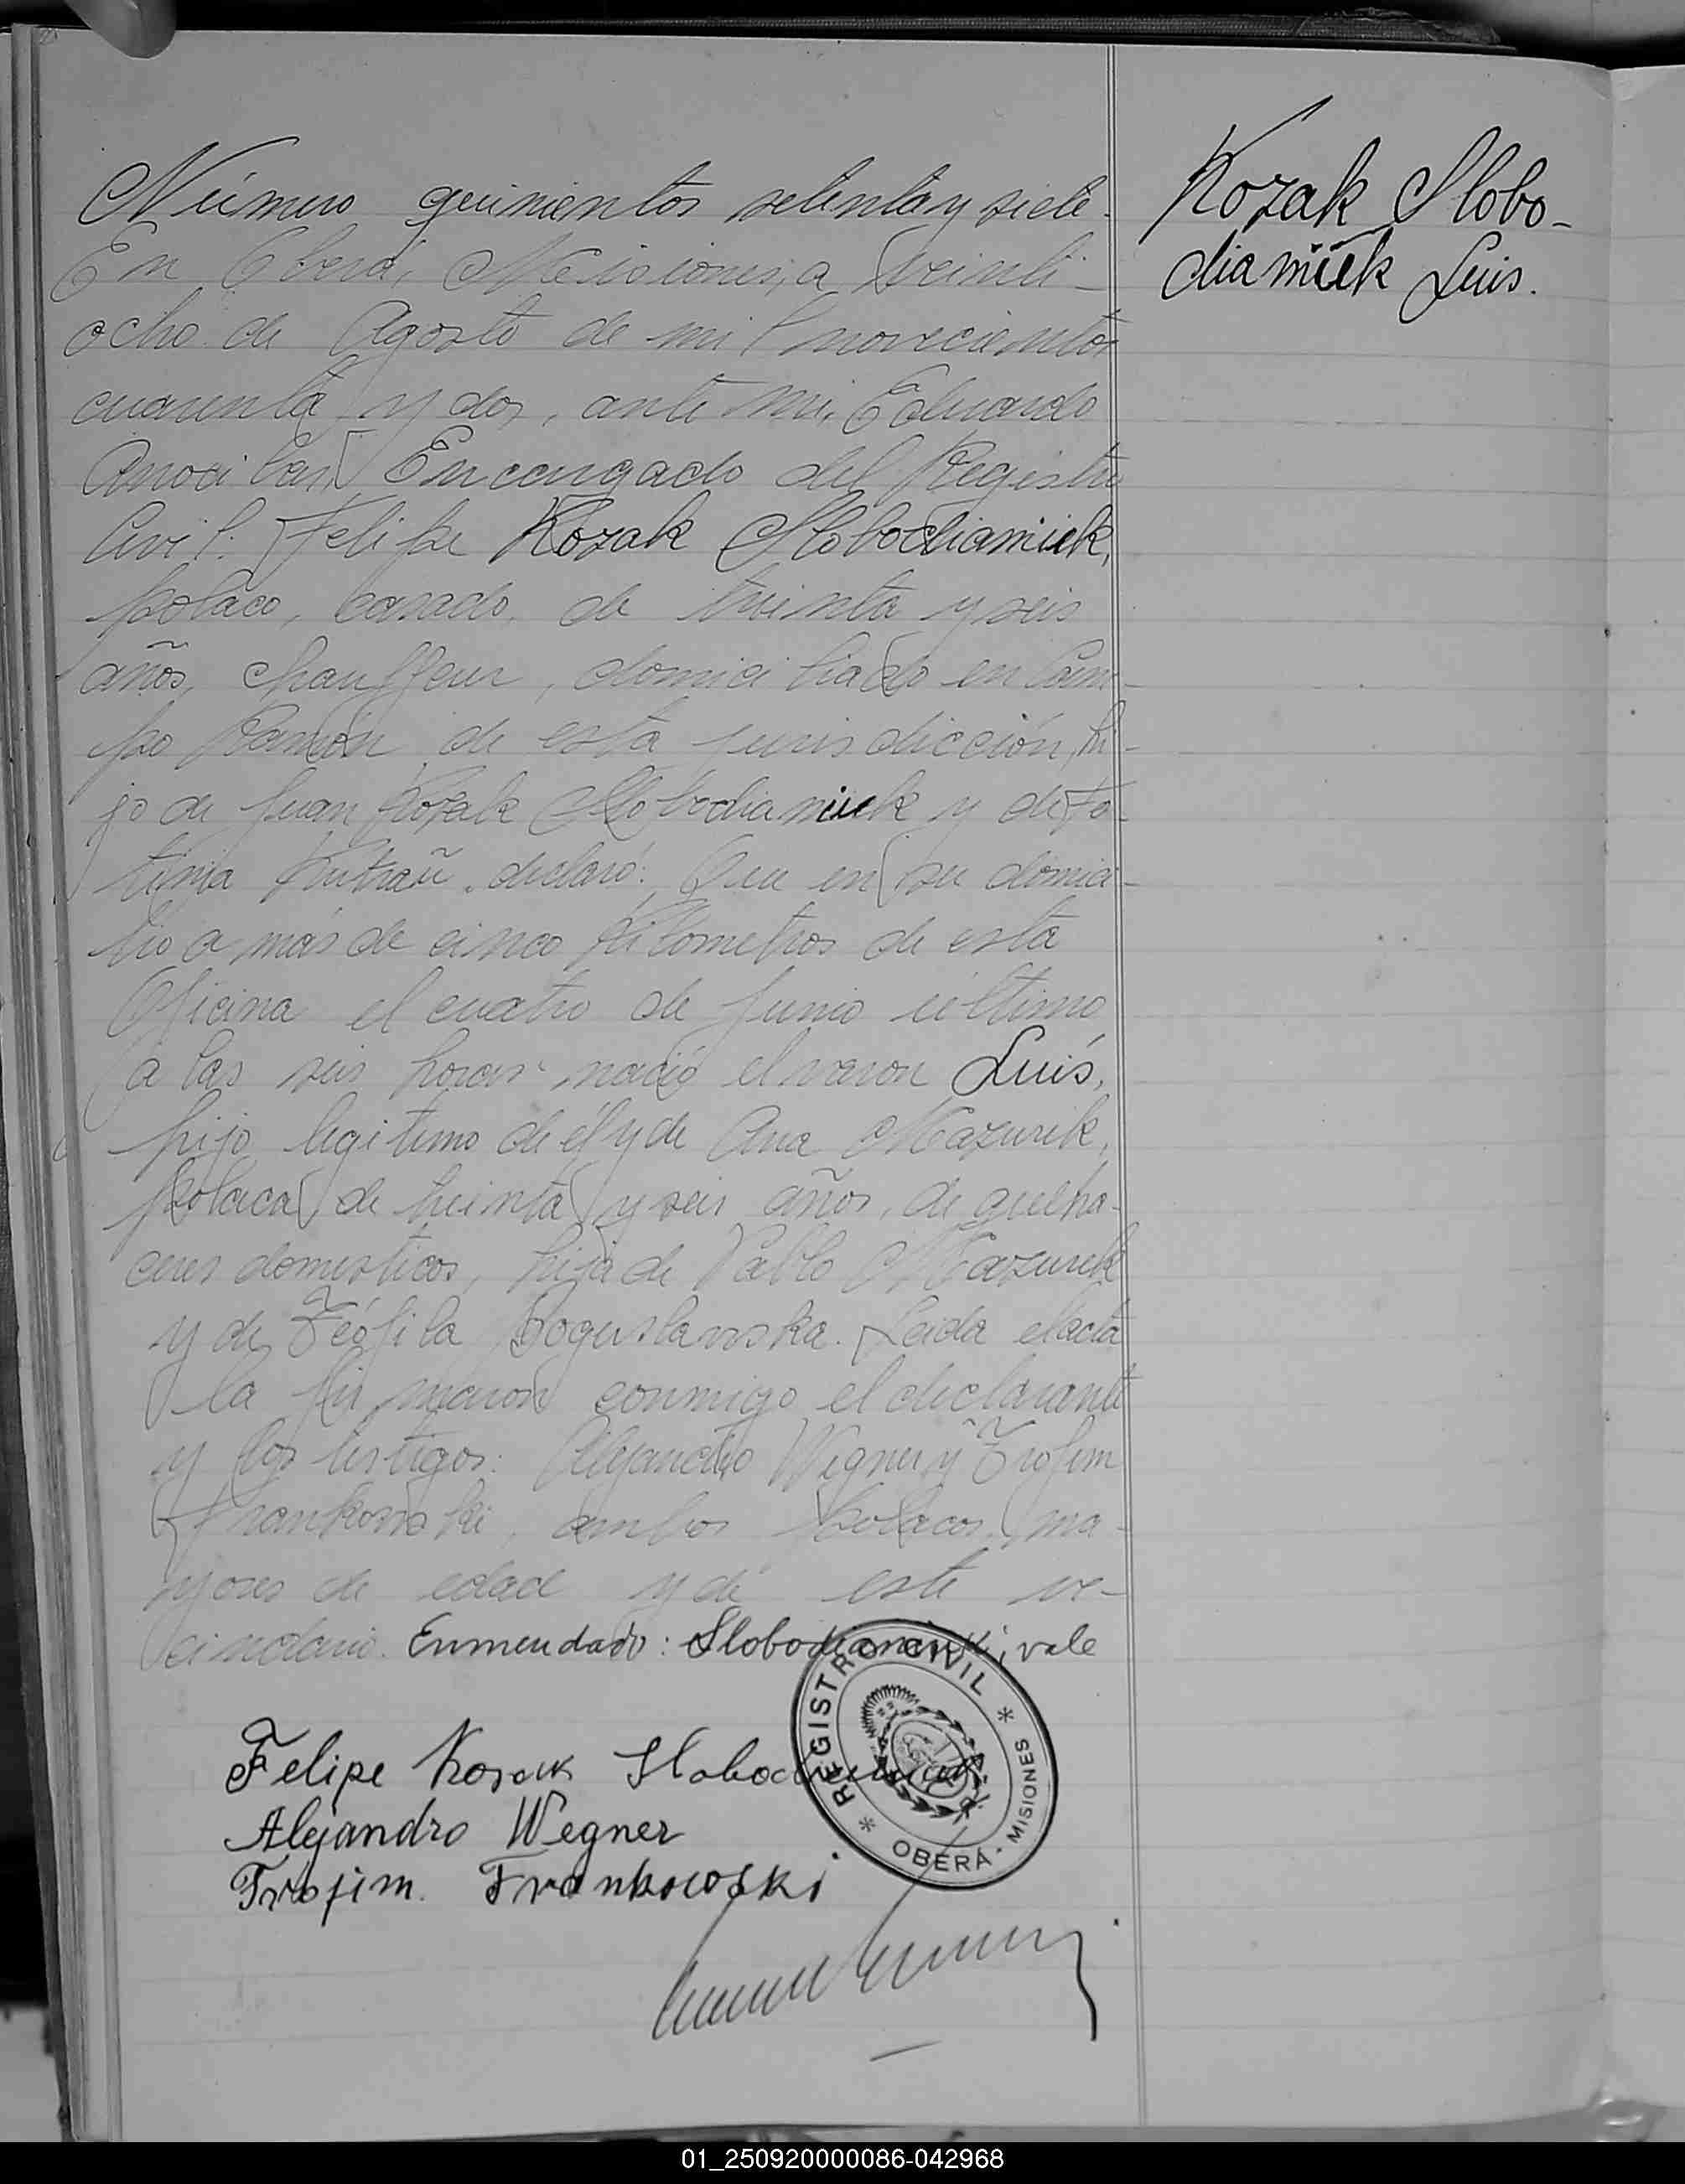 Número quinientos setenta y siete.
En Oberá, Misiones, a veinti-
ocho de Agosto de mil novecientos
cuarenta y dos, ante mi, Eduardo
Encargado del Registro
Civil: Felipe Kozak Slobodianiuk,
polaco, casado, de treinta y seis
años, chauffeur, domiciliado en Cam-
po Ramón de esta jurisdicción, hi-
jo de Juan Kozak Slobodianiuk y de
declaró: Que en su domici-
lio a más de cinco kilometros de esta
Oficina el cuatro de Junio último
a las seis horas nació el varon Luis,
hijo legitimo de él y de Ana Mazurek,
polaca de treinta y seis años, de queha-
ceres domesticos, hija de Pablo Mazurek
y de Teófila Boguslavska. Leida el acta
la firmaron conmigo el declarante
y los testigos: Alejandro Wegner y Trofim
Frankowski, ambos polacos, ma-
yores de edad y de este ve-
cindario. Enmendado: Slobodianiuk, vale
Kozak Slobo-
dianiuk Luis.
Felipe Kozak Slobodianiuk
Alejandro Wegner
Trofim. Frankowski
* REGISTRO CIVIL *
OBERÁ - MISIONES
01_250920000086-042968